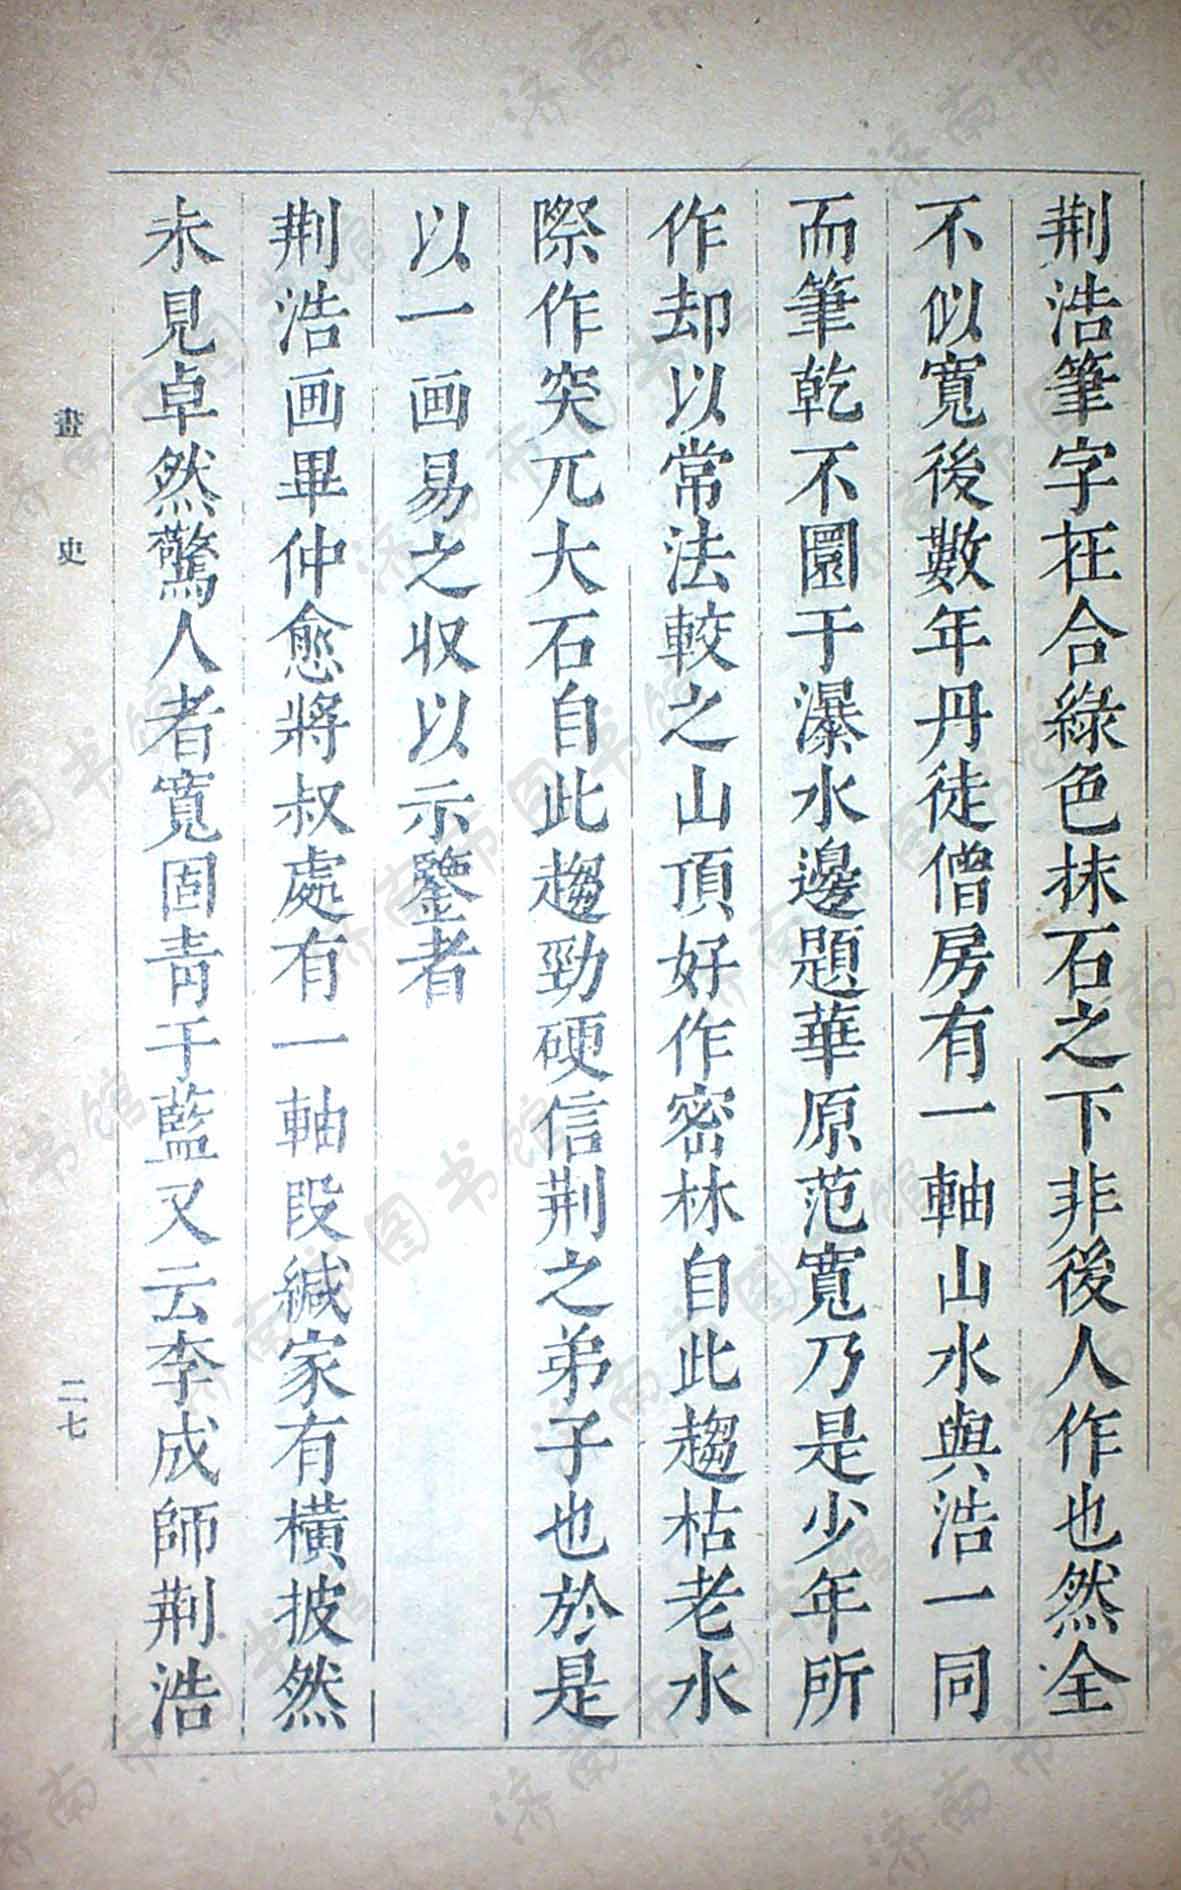 荆浩筆字在合綠色抹石之下非後人作也然全
不似寬後數年丹徒僧房有一軸山水與浩一同
而筆乾不圜于瀑水邊題華原范寬乃是少年所
作却以常法較之山頂好作密林自此趨枯老水
際作突兀大石自此趨勁硬信荆之弟子也於是
以一画易之収以示鑒者
荆浩画畢仲愈將叔處有一軸段緘家有橫披然
未見卓然驚人者寬固青于藍又云李成師荆浩
畫史
二七
济南市图书馆